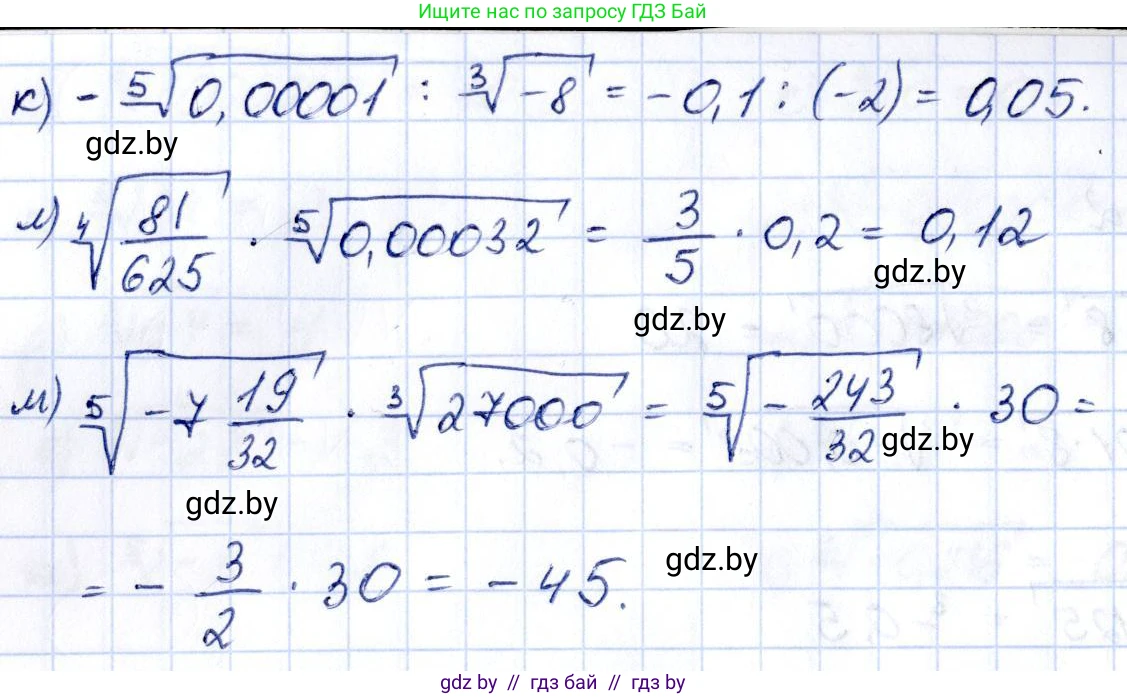 Ищите нас по запросу ГДЗ Бай
к) - ⁵√0,00001 : ³√-8 = -0,1 : (-2) = 0,05.
gdz.by
л) ⁴√81/625 · ⁵√0,00032 = 3/5 · 0,2 = 0,12
gdz.by
gdz.by
м) ⁵√-7 19/32 · ³√27000 = ⁵√-243/32 · 30 =
gdz.by
gdz.by
= - 3/2 · 30 = -45.
gdz.by
gdz.by // гдз бай // гдз by